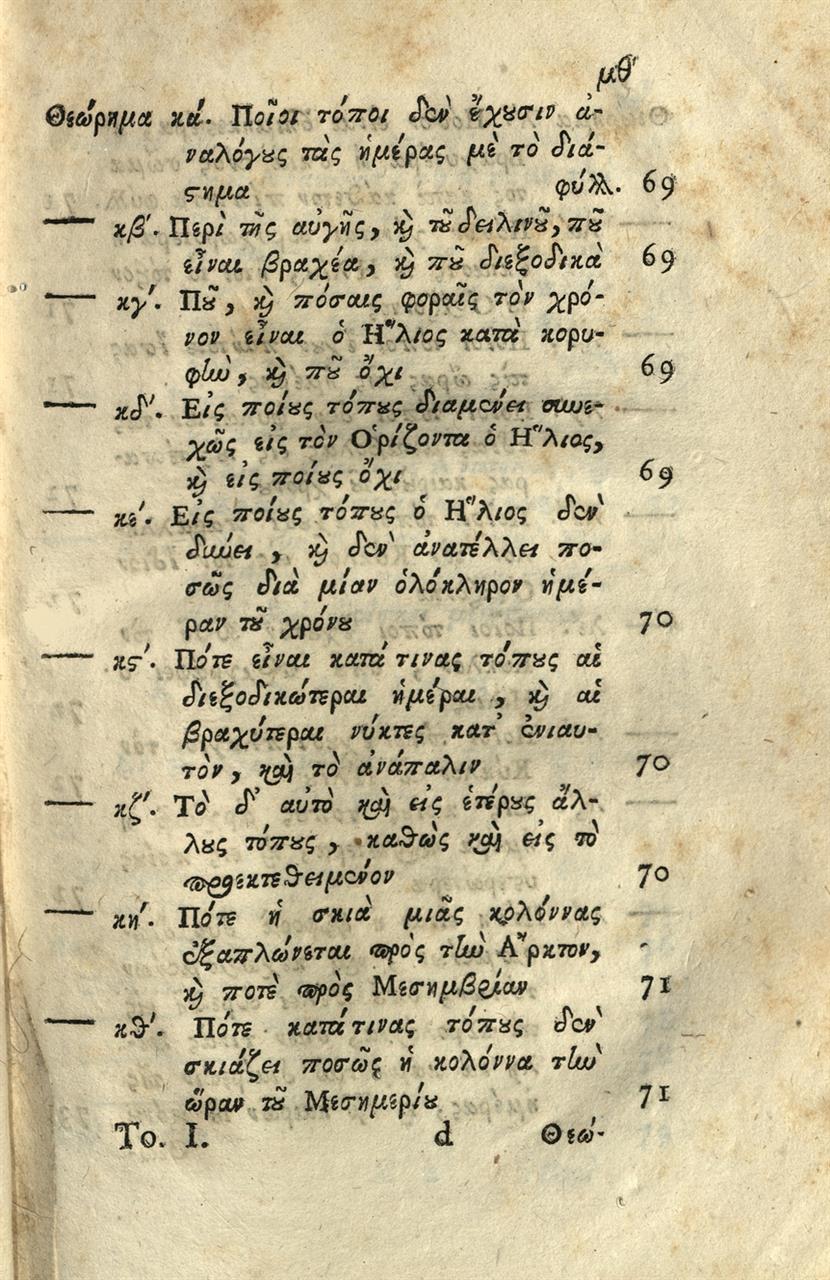 μθ'
Θεώρημα κά. Ποῖοι τόποι δὲν ἔχουσιν ἀ-
ναλόγους τὰς ἡμέρας μὲ τὸ διά-
ςημα φύλλ. 69
— κβ'. Περὶ τῆς αὐγῆς, καὶ τοῦ δειλινοῦ, ποῦ
εἶναι βραχέα, καὶ ποῦ διεξοδικὰ 69
— κγ'. Ποῦ, καὶ πόσαις φοραῖς τὸν χρό-
νον εἶναι ὁ Ἥλιος κατὰ κορυ-
φὴν, καὶ ποῦ ὄχι 69
— κδ'. Εἰς ποίους τόπους διαμένει συνε-
χῶς εἰς τὸν Ὁρίζοντα ὁ Ἥλιος,
καὶ εἰς ποίους ὄχι 69
— κε'. Εἰς ποίους τόπους ὁ Ἥλιος δὲν
δύνει, καὶ δὲν ἀνατέλλει πο-
σῶς διὰ μίαν ὁλόκληρον ἡμέ-
ραν τοῦ χρόνου 70
— κς'. Πότε εἶναι κατά τινας τόπους αἱ
διεξοδικώτεραι ἡμέραι, καὶ αἱ
βραχύτεραι νύκτες κατ' ἐνιαυ-
τὸν, καὶ τὸ ἀνάπαλιν 70
— κζ'. Τὸ δ' αὐτὸ καὶ εἰς ἑτέρους ἄλ-
λους τόπους, καθὼς καὶ εἰς τὸ
προεκτεθειμένον 70
— κη'. Πότε ἡ σκιὰ μιᾶς κολόννας
ἐξαπλώνεται πρὸς τὴν Ἄρκτον,
καὶ ποτὲ πρὸς Μεσημβρίαν 71
— κθ'. Πότε κατά τινας τόπους δὲν
σκιάζει ποσῶς ἡ κολόννα τὴν
ὥραν τοῦ Μεσημερίου 71
To. I. d Θεώ-